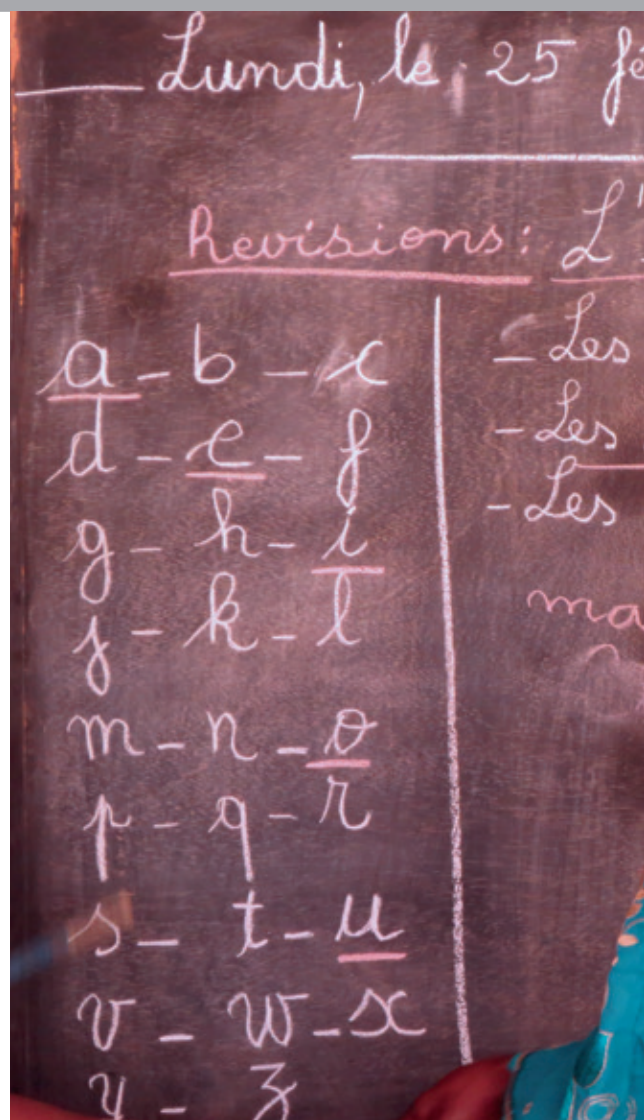 Lundi, le 25 fé
Revisions: L'
a - b - c
d - e - f
g - h - i
j - k - l
m - n - o
p - q - r
s - t - u
v - w - x
y - z
- Les
- Les
- Les
ma